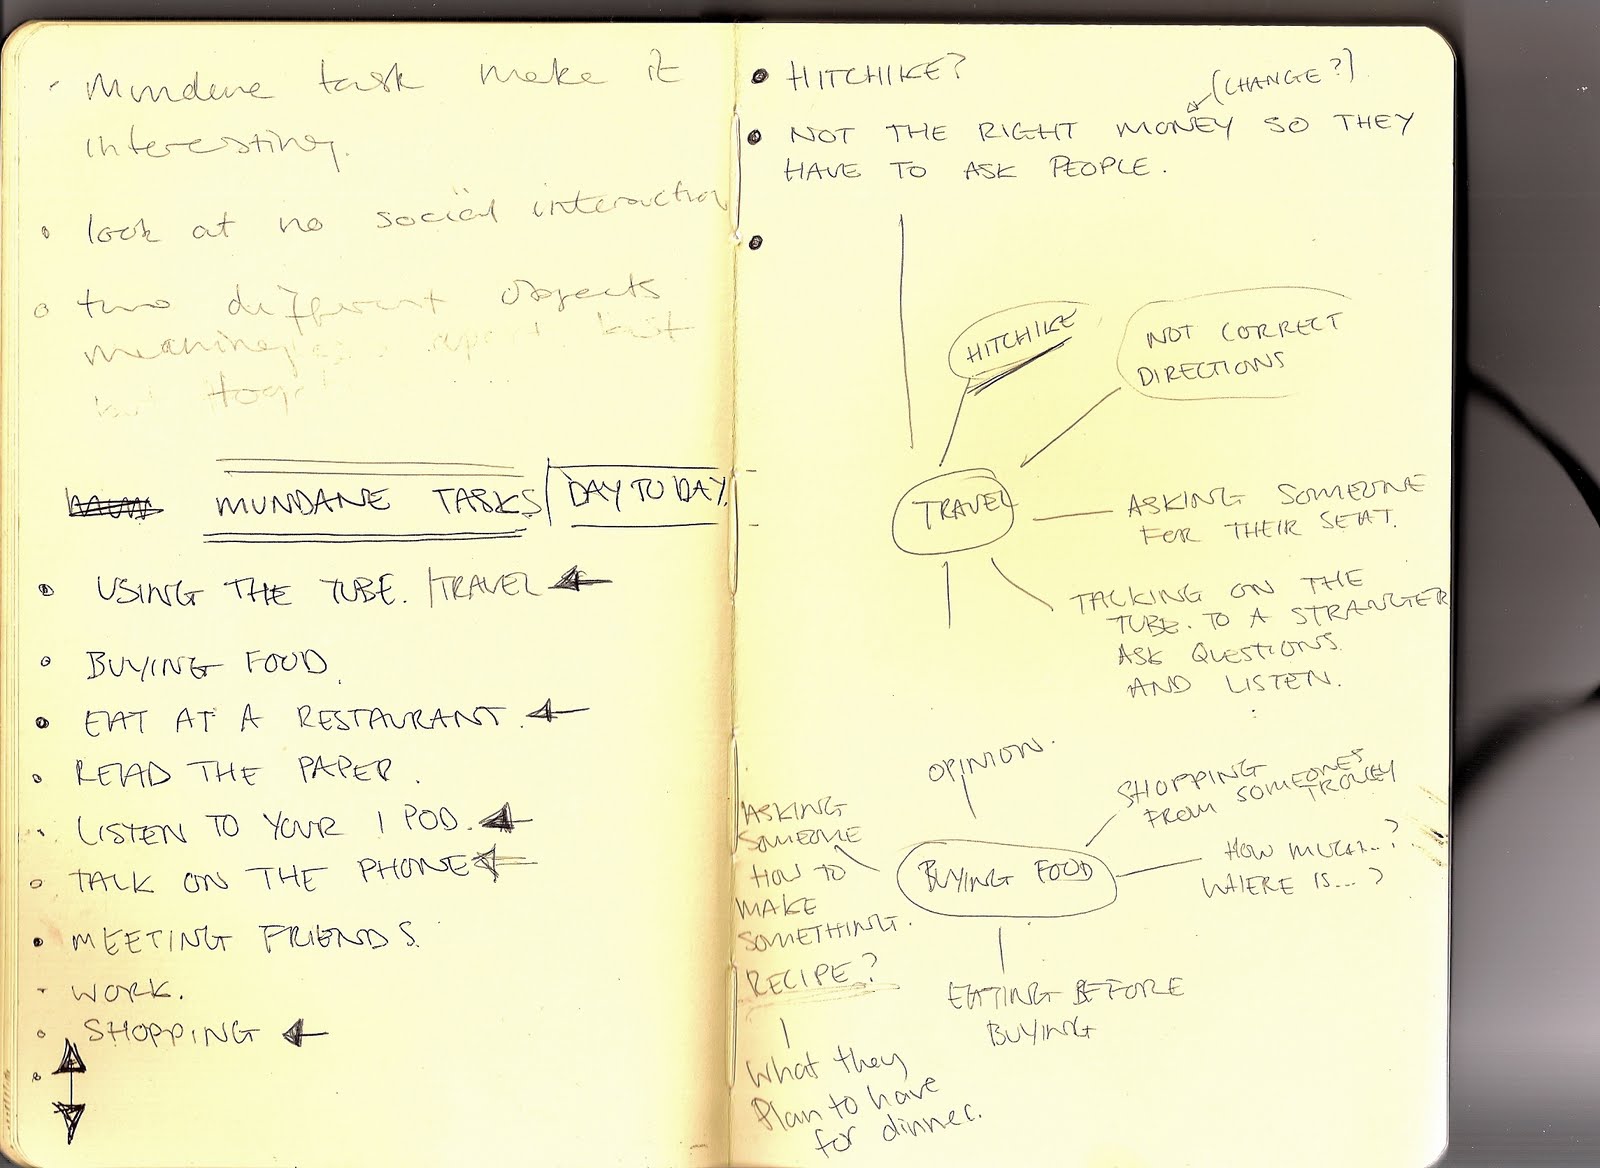 Mundane task make it
interesting.
look at no social interaction
two different objects
meaning apart but
but
MUNDANE TASKS/ DAY TO DAY.
USING THE TUBE. /TRAVEL
BUYING FOOD.
EAT AT A RESTAURANT.
READ THE PAPER.
LISTEN TO YOUR I POD.
TALK ON THE PHONE
MEETING FRIENDS.
WORK.
SHOPPING
HITCHIKE?
(CHANGE?)
NOT THE RIGHT MONEY SO THEY
HAVE TO ASK PEOPLE.
HITCHIKE
NOT CORRECT
DIRECTIONS
TRAVEL
ASKING SOMEONE
FOR THEIR SEAT.
TALKING ON THE
TUBE. TO A STRANGER
ASK QUESTIONS.
AND LISTEN.
OPINION.
SHOPPING
FROM SOMEONES
TROLLEY
ASKING
SOMEONE
HOW TO
MAKE
SOMETHING.
RECIPE?
BUYING FOOD
HOW MUCH...?
WHERE IS...?
EATING BEFORE
BUYING
What they
Plan to have
for dinner.